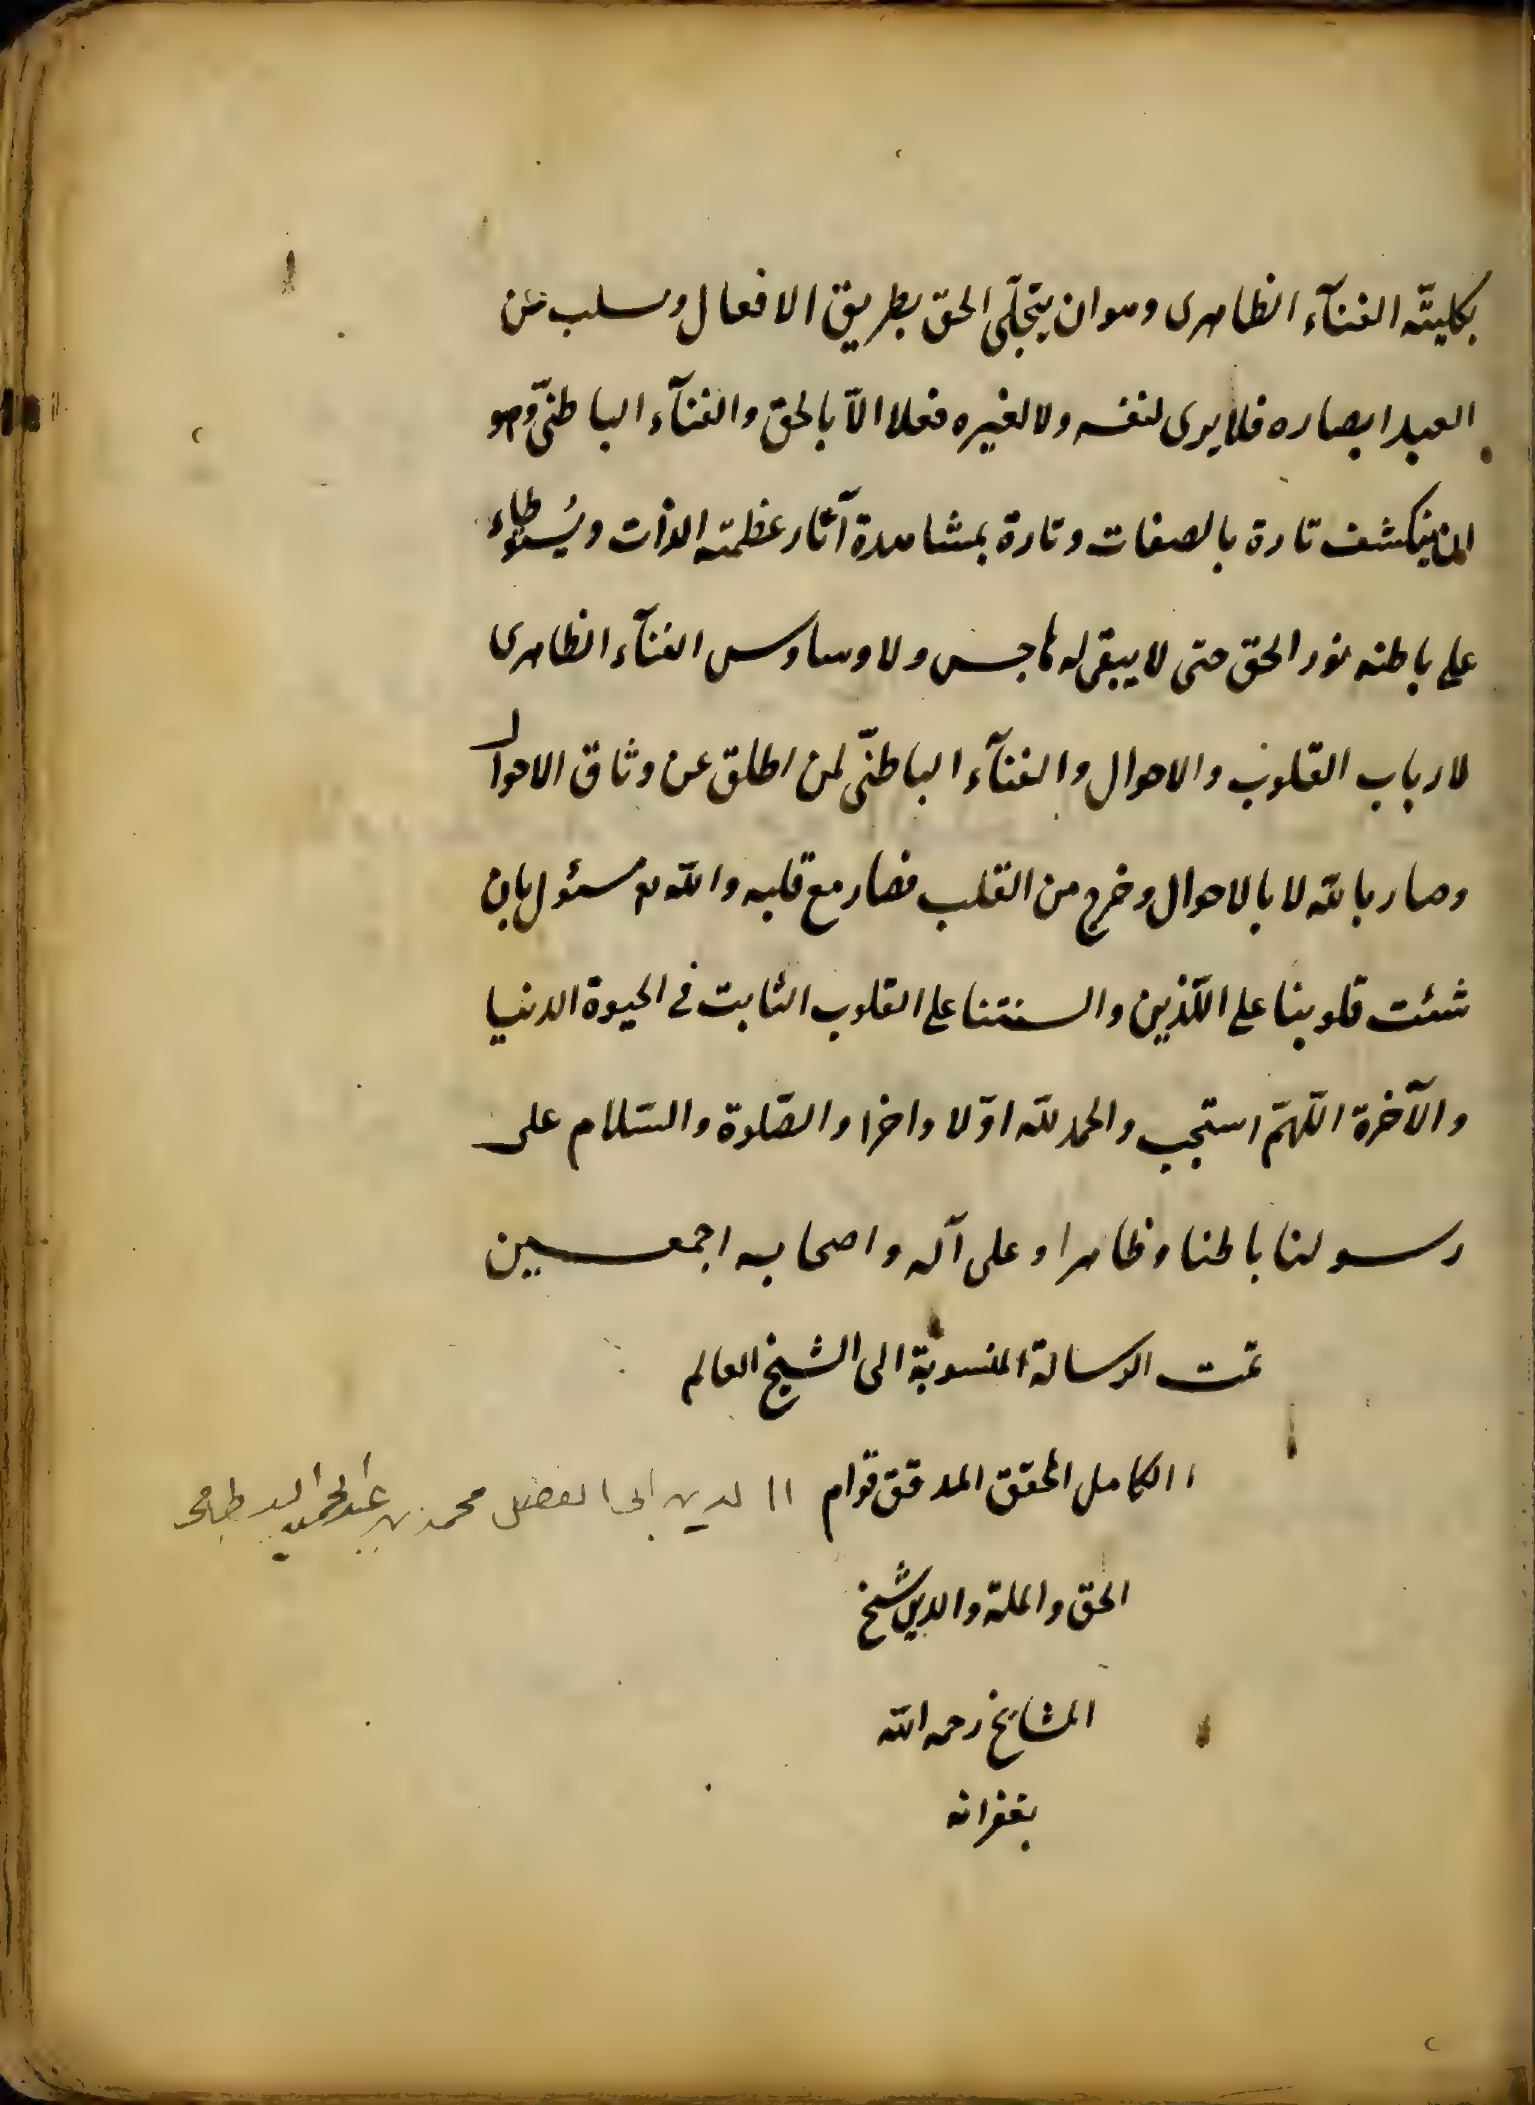 بكليته الفنآء الظاهرى وهو ان يتجلّى الحق بطريق الافعال وسلب عن
العبد ابصاره فلا يرى لنفسه ولا لغيره فعلا الاّ بالحق والفنآء الباطنىّ وهو
ان ينكشف تارة بالصفات وتارة بمشاهدة آثار عظمته الذات ويستولى
على باطنه نور الحق حتى لا يبقى له هاجس ولا وساوس الفنآء الظاهرى
لارباب القلوب والاحوال والفنآء الباطنىّ لمن اطلق عن وثاق الاحوال
وصار بالله لا بالاحوال وخرج من القلب فصار مع قلبه والله مسئول بان
شئت قلوبنا على اللّذين والسنتنا على القلوب الثابت فى الحيوة الدنيا
والآخرة اللّهمّ استجب والحمد للّه اوّلا واخرا والصّلوة والسّلام على
رسولنا باطنا وظاهرا وعلى آله واصحابه اجمعين
تمت الرسالة المنسوبة الى الشيخ العالم
الكامل المحقق المدقق قوام ١١ الدين ابى الفضل محمد بن عبد الحميد
الحق والملة والدين شيخ
المشايخ رحمه الله
بغفرانه